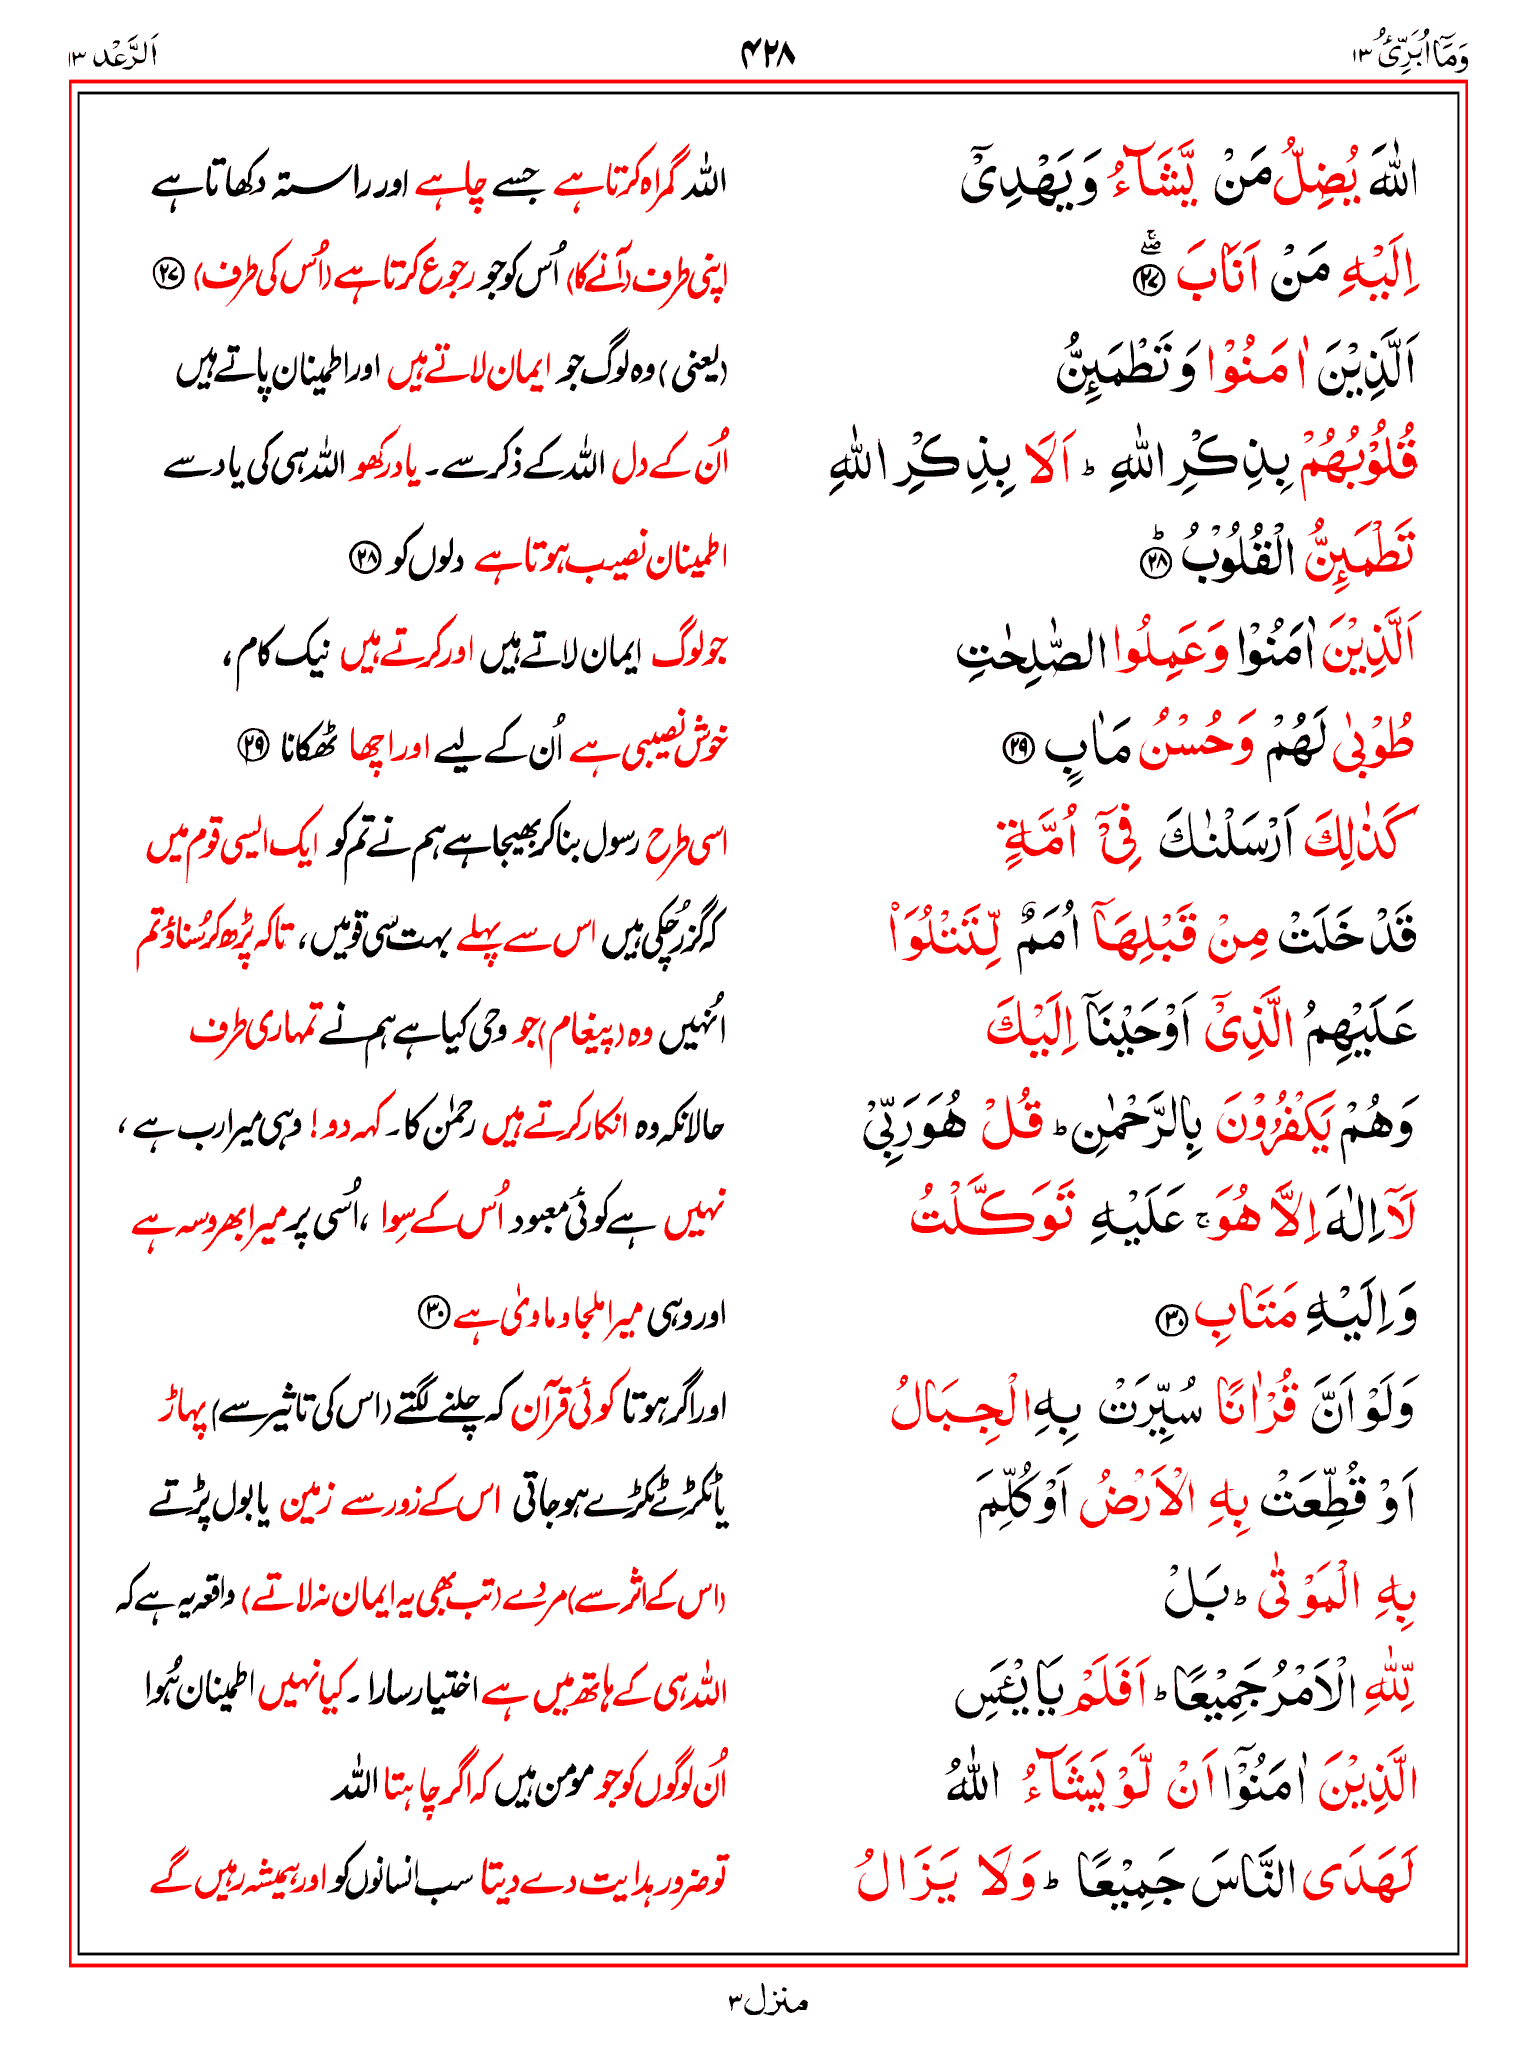 وَمَآ اُبَرِّئُ ۱۳
۴۲۸
اَلرَّعْد ۱۳
اللّٰهَ يُضِلُّ مَنْ يَّشَآءُ وَيَهْدِيْٓ
الله گمراہ کرتا ہے جسے چاہے اور راستہ دکھاتا ہے
اِلَيْهِ مَنْ اَنَابَ ۖۚ ﴿۲۷﴾
اپنی طرف (آنے کا) اُس کو جو رجوع کرتا ہے (اُس کی طرف) ﴿۲۷﴾
اَلَّذِيْنَ اٰمَنُوْا وَتَطْمَىِٕنُّ
(یعنی) وہ لوگ جو ایمان لاتے ہیں اور اطمینان پاتے ہیں
قُلُوْبُهُمْ بِذِكْرِ اللّٰهِ ؕ اَلَا بِذِكْرِ اللّٰهِ
اُن کے دل الله کے ذکر سے۔ یاد رکھو الله ہی کی یاد سے
تَطْمَىِٕنُّ الْقُلُوْبُ ؕ ﴿۲۸﴾
اطمینان نصیب ہوتا ہے دلوں کو ﴿۲۸﴾
اَلَّذِيْنَ اٰمَنُوْا وَعَمِلُوا الصّٰلِحٰتِ
جو لوگ ایمان لاتے ہیں اور کرتے ہیں نیک کام،
طُوْبٰى لَهُمْ وَحُسْنُ مَاٰبٍ ﴿۲۹﴾
خوش نصیبی ہے اُن کے لیے اور اچھا ٹھکانا ﴿۲۹﴾
كَذٰلِكَ اَرْسَلْنٰكَ فِيْٓ اُمَّةٍ
اسی طرح رسول بنا کر بھیجا ہے ہم نے تم کو ایک ایسی قوم میں
قَدْ خَلَتْ مِنْ قَبْلِهَآ اُمَمٌ لِّتَتْلُوَا۟
کہ گزر چُکی ہیں اس سے پہلے بہت سی قومیں، تاکہ پڑھ کر سُناؤ تم
عَلَيْهِمُ الَّذِيْٓ اَوْحَيْنَآ اِلَيْكَ
اُنہیں وہ (پیغام) جو وحی کیا ہے ہم نے تمہاری طرف
وَهُمْ يَكْفُرُوْنَ بِالرَّحْمٰنِ ؕ قُلْ هُوَ رَبِّيْ
حالانکہ وہ انکار کرتے ہیں رحمٰن کا۔ کہہ دو! وہی میرا رب ہے،
لَآ اِلٰهَ اِلَّا هُوَ ۚ عَلَيْهِ تَوَكَّلْتُ
نہیں ہے کوئی معبود اُس کے سِوا، اُسی پر میرا بھروسہ ہے
وَاِلَيْهِ مَتَابِ ﴿۳۰﴾
اور وہی میرا ملجا و ماویٰ ہے ﴿۳۰﴾
وَلَوْ اَنَّ قُرْاٰنًا سُيِّرَتْ بِهِ الْجِبَالُ
اور اگر ہوتا کوئی قرآن کہ چلنے لگتے (اس کی تاثیر سے) پہاڑ
اَوْ قُطِّعَتْ بِهِ الْاَرْضُ اَوْ كُلِّمَ
یا ٹکڑے ٹکڑے ہوجاتی اس کے زور سے زمین یا بول پڑتے
بِهِ الْمَوْتٰى ؕ بَلْ
(اس کے اثر سے) مردے (تب بھی یہ ایمان نہ لاتے) واقعہ یہ ہے کہ
لِّلّٰهِ الْاَمْرُ جَمِيْعًا ؕ اَفَلَمْ يَايْـَٔسِ
الله ہی کے ہاتھ میں ہے اختیار سارا۔ کیا نہیں اطمینان ہُوا
الَّذِيْنَ اٰمَنُوْٓا اَنْ لَّوْ يَشَآءُ اللّٰهُ
اُن لوگوں کو جو مومن ہیں کہ اگر چاہتا الله
لَهَدَى النَّاسَ جَمِيْعًا ؕ وَلَا يَزَالُ
تو ضرور ہدایت دے دیتا سب انسانوں کو اور ہمیشہ رہیں گے
منزل ۳